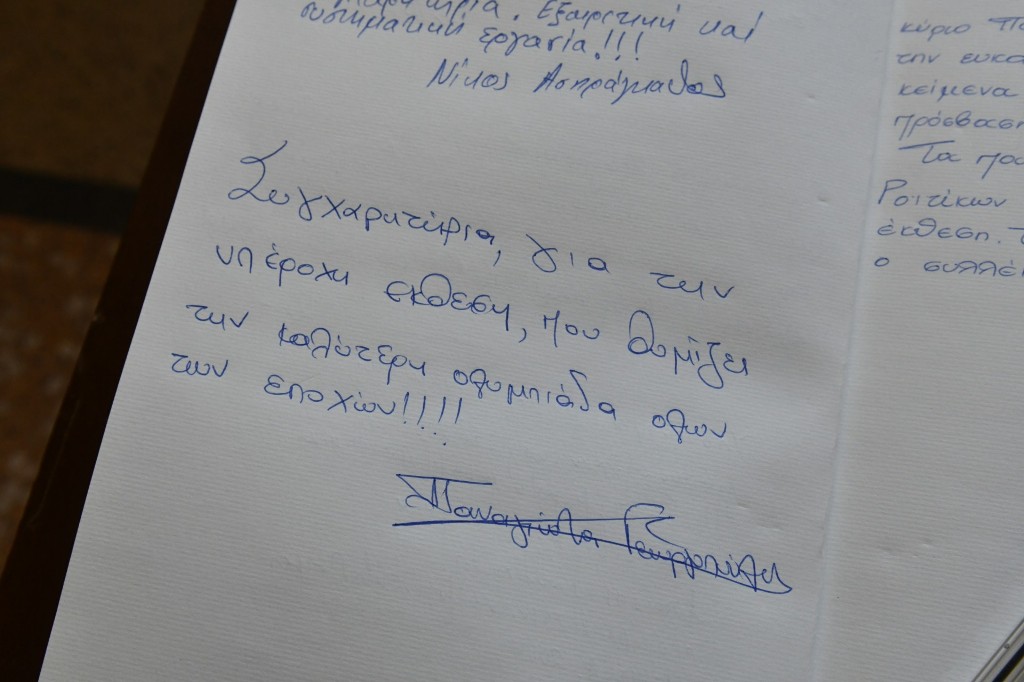 Εξαιρετική και
συστηματική εργασία!!!
Νίκος Ασπράγκαθος
Συγχαρητήρια, για την
υπέροχη εκθεση, που θυμίζει
την καλύτερη ολυμπιάδα ολων
των εποχών!!!!
Παναγιώτα Γεωργοπούλου
κύριο
την
κείμενα
πρόσβαση
Τα
Ροιτίκων
έκθεση.
ο